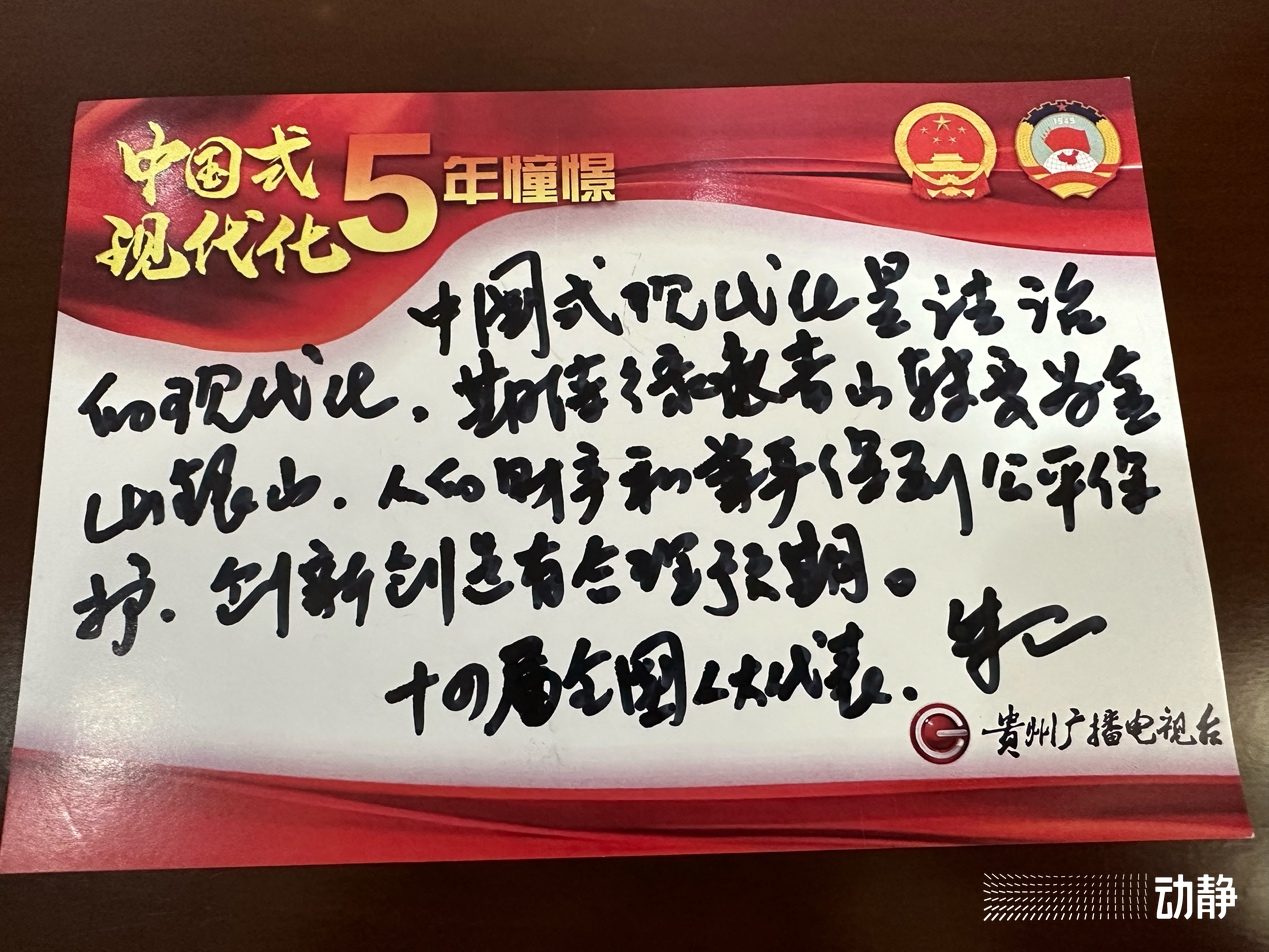 中国式
现代化5年憧憬
1949
中国式现代化是法治
的现代化。期待绿水青山转变为金
山银山。人的财产和尊严得到公平保
护。创新创造有合理预期。
十四届全国人大代表.
贵州广播电视台
动静